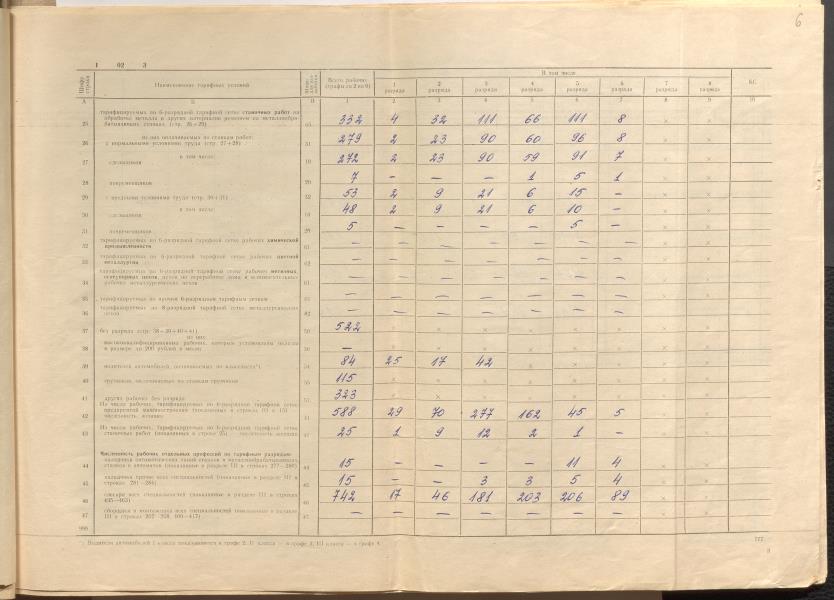 6
1 02 3
Шифр строки
Наименование тарифных условий
Всего рабочих (графы 2 по 9)
В том числе
1 разряда
2 разряда
3 разряда
4 разряда
5 разряда
6 разряда
7 разряда
8 разряда
А Б В 1 2 3 4 5 6 7 8 9 10
тарифицируемых по 6-разрядной тарифной сетке станочных работ по
обработке металла и других материалов резанием на металлообра-
25 батывающих станках (стр. 26+29) 332 4 32 111 66 111 8 × ×
из них оплачиваемых по ставкам работ:
26 с нормальными условиями труда (стр. 27+28) 31 279 2 23 90 60 96 8 × ×
в том числе:
27 сдельщиков 272 2 23 90 59 91 7 × ×
28 повременщиков 7 – – – 1 5 1 × ×
29 с вредными условиями труда (стр. 30+31) 53 2 9 21 6 15 – × ×
в том числе:
30 сдельщиков 48 2 9 21 6 10 – × ×
31 повременщиков 5 – – – – 5 – × ×
тарифицируемых по 6-разрядной тарифной сетке рабочих химической
32 промышленности – – – – – – – × ×
тарифицируемых по 6-разрядной тарифной сетке рабочих цветной
33 металлургии – – – – – – – × ×
тарифицируемых по 6-разрядной тарифной сетке рабочих
34 рабочих металлургических цехов – – – – – – – × ×
35 тарифицируемых по прочим 6-разрядным тарифным сеткам – – – – – – – × ×
тарифицируемых по 8-разрядной тарифной сетке металлургических
36 цехов – – – – – – –
37 без разряда (стр. 38+39+40+41) 522 × × × × × × × ×
из них:
высококвалифицированных рабочих, которым установлены оклады
38 в размере до 200 рублей в месяц – × × × × × × × ×
39 водителей автомобилей, оплачиваемых по классности*) 84 25 17 42 × × × × ×
40 грузчиков, оплачиваемых по ставкам грузчиков 115 × × × × × × × ×
41 других рабочих без разряда 323 × × × × × × × ×
Из числа рабочих, тарифицируемых по 6-разрядной тарифной сетке
предприятий машиностроения (показанных в строках 03 и 15)
42 численность женщин 588 29 70 277 162 45 5 × ×
Из числа рабочих, тарифицируемых по 6-разрядной тарифной сетке
43 станочных работ (показанных в строке 25) численность женщин 25 1 9 12 2 1 – × ×
Численность рабочих отдельных профессий по тарифным разрядам:
наладчики автоматических линий станков и металлообрабатывающих
44 станков и автоматов (показанные в разделе III в строках 277–280) 15 – – – – 11 4 × ×
наладчики прочие всех специальностей (показанные в разделе III в
45 строках 281–284) 15 – – 3 3 5 4 × ×
слесари всех специальностей (показанные в разделе III в строках
46 435–463) 742 17 46 181 203 206 89 × ×
сборщики и монтажники всех специальностей (показанные в разделе
47 III в строках – – – – – – – × ×
998
777
*) Водители автомобилей I класса показываются в графе 2, II класса — в графе 3, III класса — в графе 4.